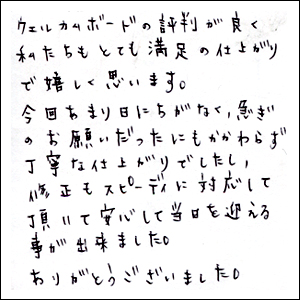 ウェルカムボードの評判が良く
私たちもとても満足の仕上がり
で嬉しく思います。
今回あまり日にちがなく、急ぎ
のお願いだったにもかかわらず
丁寧な仕上がりでしたし、
修正もスピーディに対応して
頂いて安心して当日を迎える
事が出来ました。
ありがとうございました。